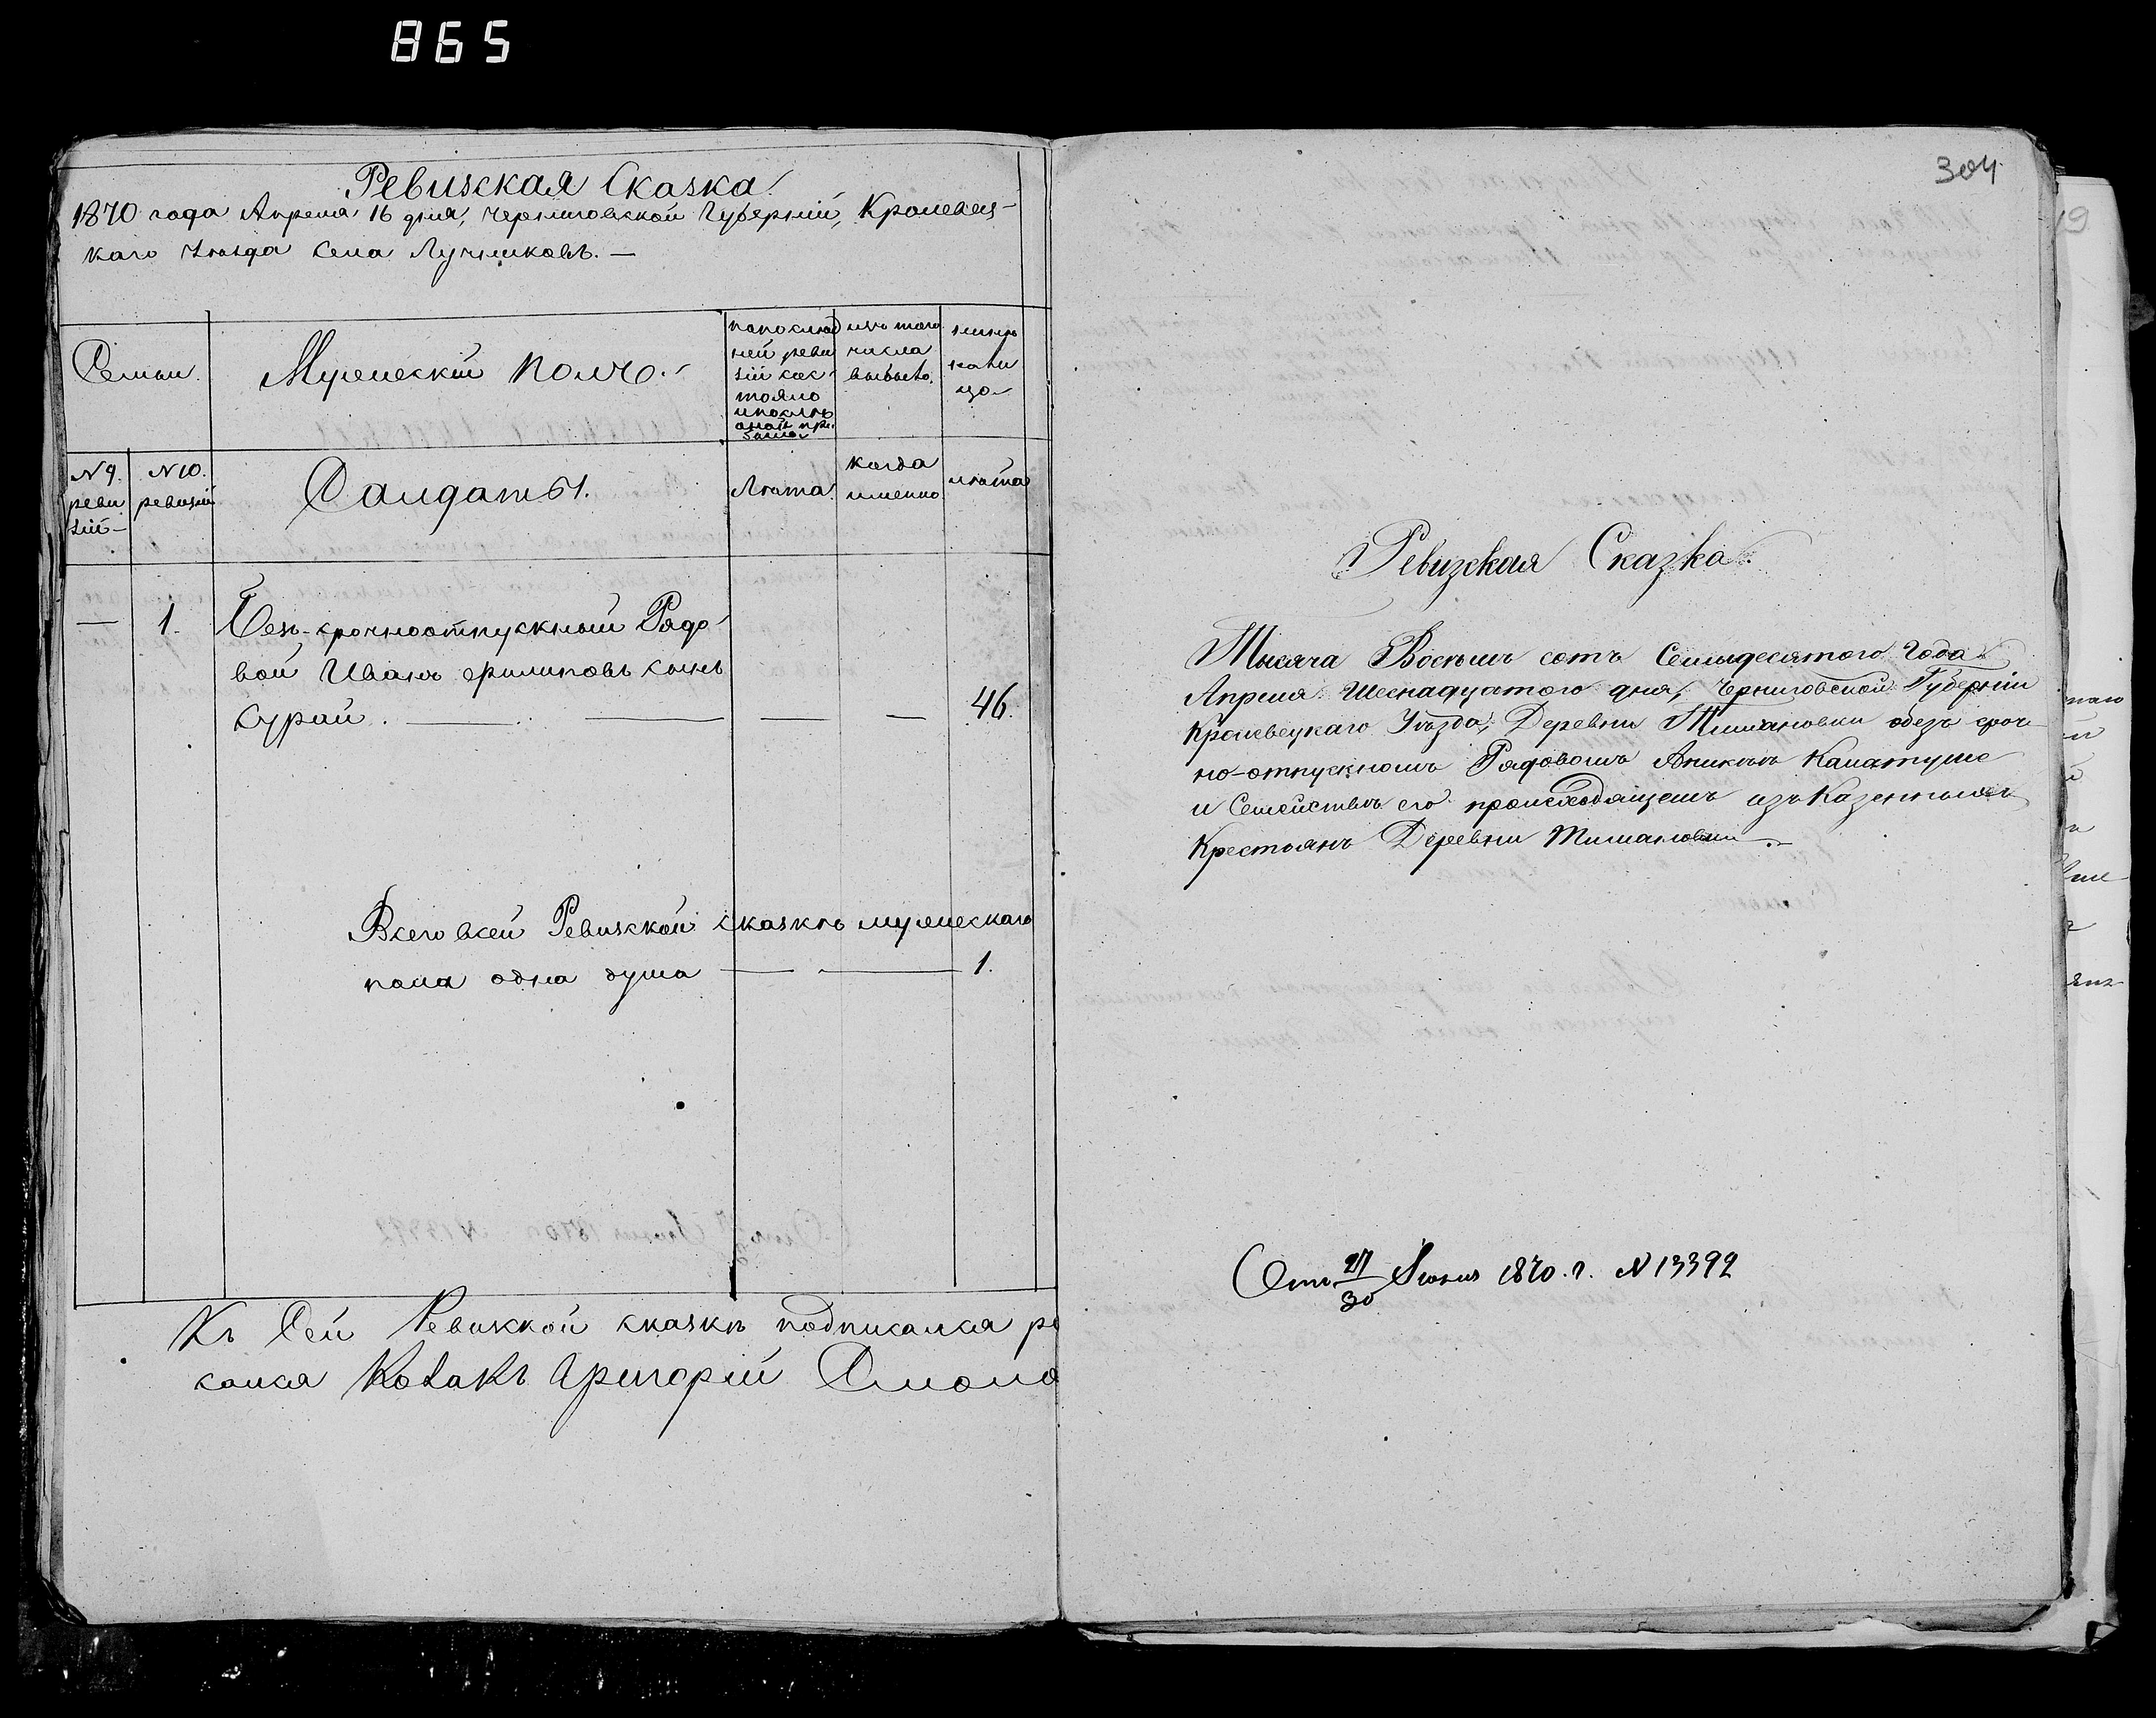 865
Ревизская Сказка.
1870 года Апреля 16 дня, Черниговской Губерніи, Кролевец-
каго Уѣзда Села Лучниковъ. —
Семьи.
Мужескій Полъ.
попослѣд
ней реви
зіи сос-
тояло
ипослѣ
оной при
было
изъ того
числа
выбыло.
ныне
нали
цо
N 9.
реви
зіи —
N 10.
ревизіи
Салдаты.
Лѣта.
когда
именно
лѣта
— 1. Безъ-срочноотпускный Рядо
вой Иванъ Филиповъ сынъ
Сурай. — — — — 46.
Всего всей Ревизской сказкѣ мужескаго
пола одна душа — — 1.
Къ Сей Ревизской сказкѣ подписался
салея Козакъ Григорій
304
Ревизская Сказка.
Тысяча Восемь сотъ Семьдесятого Года
Апреля Шеснадцатого дня, Черниговской Губерніи
Кролевецкаго Уѣзда, Деревни Тимановки обезъ сроч
но-отпускномъ Рядовомъ Аникѣѣ Калатуше
и Семействѣ его происходящемъ изъ Казенныхъ
Крестьянъ Деревни Тимановки. —
От 27/30 Іюня 1870. г. N 13392